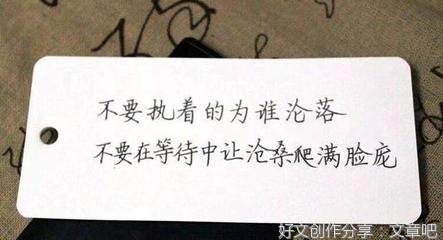 不要执着的为谁沦落
不要在等待中让沧桑爬满脸庞
好文创作分享：文章吧